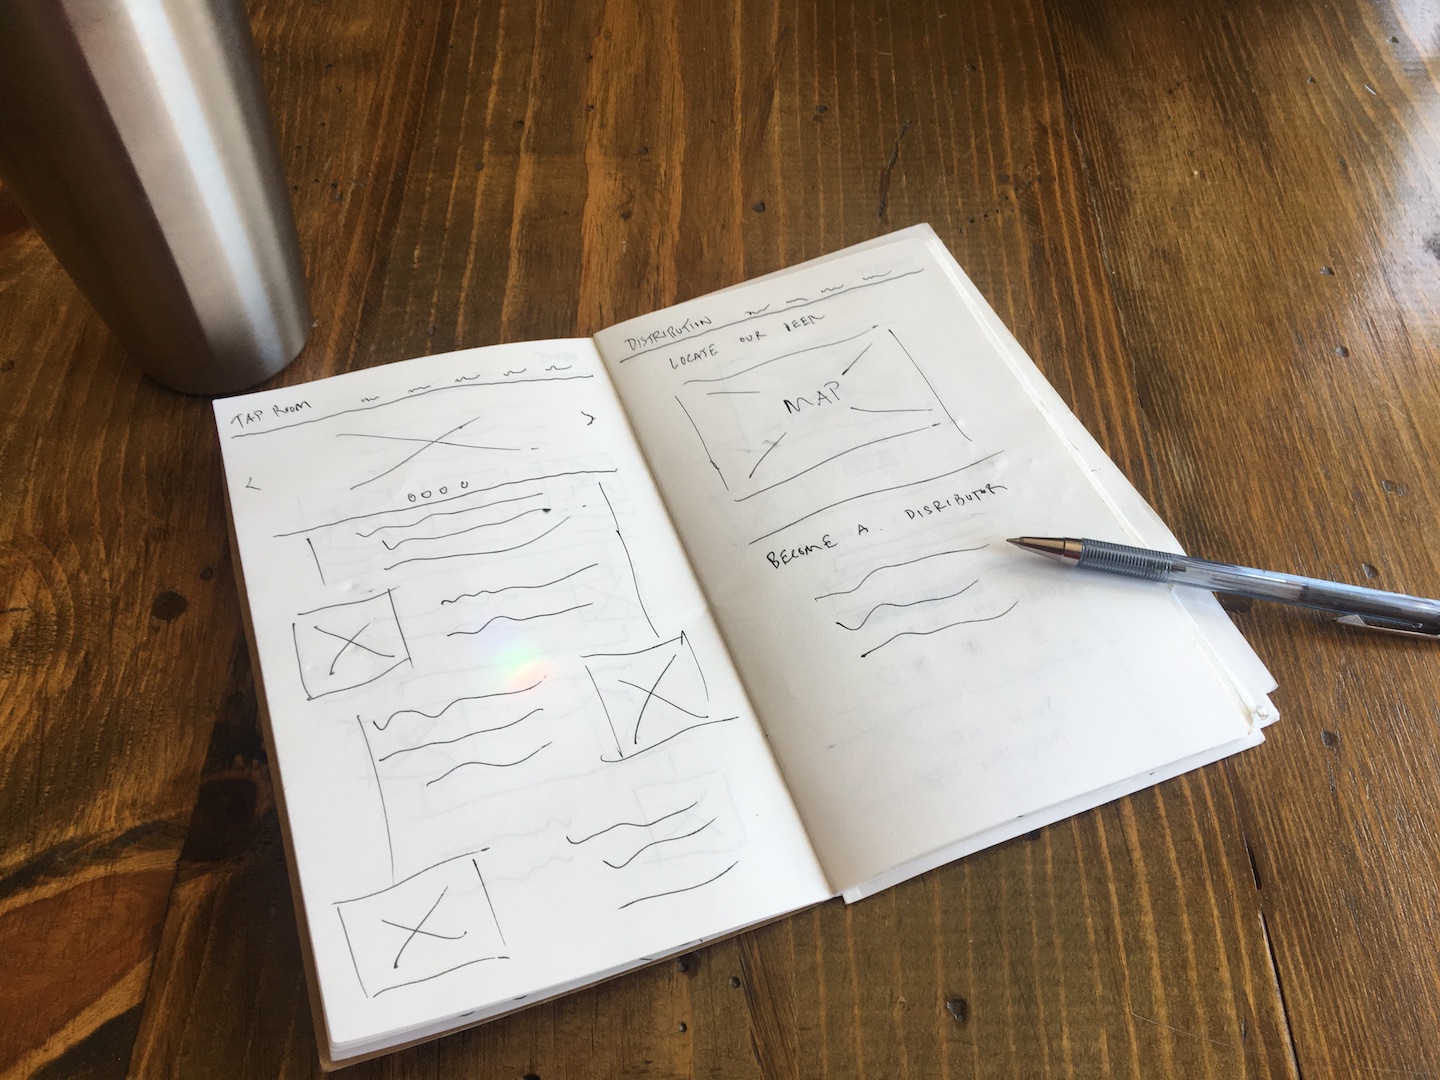 TAP ROOM
DISTRIBUTION
LOCATE OUR BEER
MAP
BECOME A. DISRIBUTOR